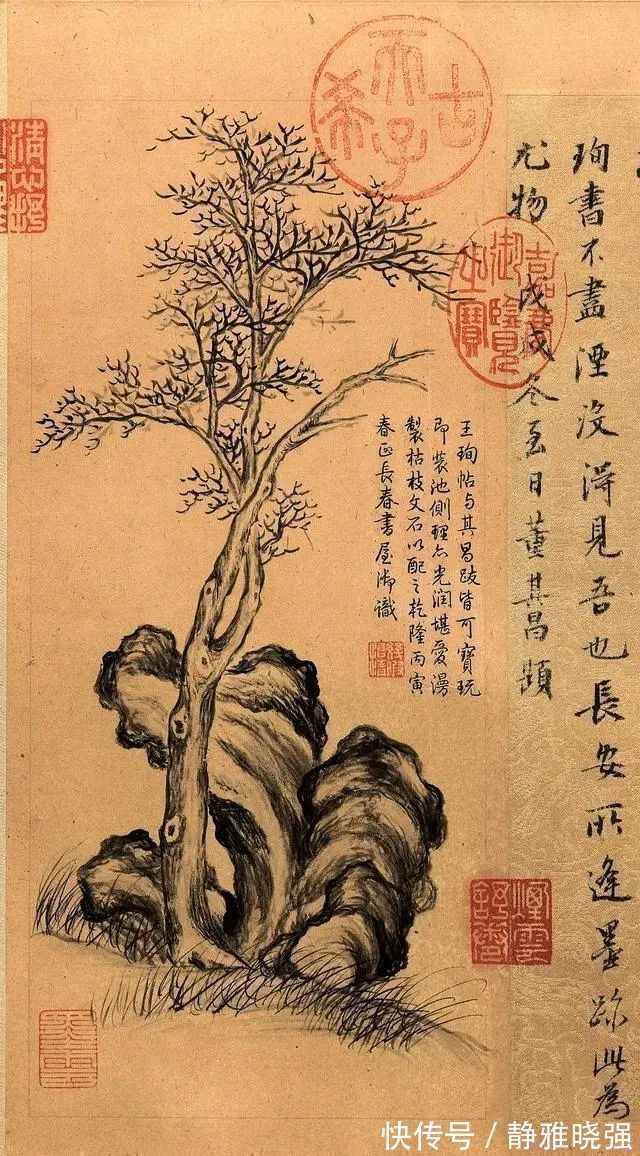 珣書不盡湮没得見吾也長安所逢墨跡此為
尤物 戊戌冬至日董其昌題
古希天子
嘉慶御覽之寶
王珣帖与其昌跋皆可寶玩
即裝池側理亦光潤堪愛漫
製枯枝文石以配之乾隆丙寅
春正長春書屋御識
快传号 / 静雅晓强